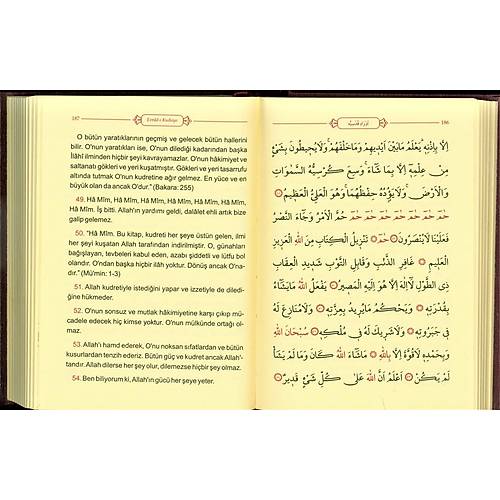 187
Evrâd-ı Kudsiye
O bütün yaratıklarının geçmiş ve gelecek bütün hallerini
bilir. O'nun yaratıkları ise, O'nun dilediği kadarından başka
İlâhî ilminden hiçbir şeyi kavrayamazlar. O'nun hâkimiyet ve
saltanatı gökleri ve yeri kuşatmıştır. Gökleri ve yeri tasarrufu
altında tutmak O'nun kudretine ağır gelmez. En yüce ve en
büyük olan da ancak O'dur." (Bakara: 255)
49. Hâ Mîm, Hâ Mîm, Hâ Mîm, Hâ Mîm, Hâ Mîm, Hâ Mîm,
Hâ Mîm. İş bitti. Allah'ın yardımı geldi, dalâlet ehli artık bize
galip gelemez.
50. "Hâ Mîm. Bu kitap, kudreti her şeye üstün gelen, ilmi
her şeyi kuşatan Allah tarafından indirilmiştir. O, günahları
bağışlayan, tevbeleri kabul eden, azabı şiddetli ve lütfu bol
olandır. O'ndan başka hiçbir ilâh yoktur. Dönüş ancak O'na-
dır." (Mü'min: 1-3)
51. Allah kudretiyle istediğini yapar ve izzetiyle de diledi-
ğine hükmeder.
52. O'nun sonsuz ve mutlak hâkimiyetine karşı çıkıp mü-
cadele edecek hiç kimse yoktur. O'nun mülkünde ortağı ol-
maz.
53. Allah'ı hamd ederek, O'nu noksan sıfatlardan ve bütün
kusurlardan tenzih ederiz. Bütün güç ve kudret ancak Allah'-
tandır. Allah dilerse her şey olur, dilemezse hiçbir şey olmaz.
54. Ben biliyorum ki, Allah'ın gücü her şeye yeter.
اَوْرَادِ قُدْسِيَّه
186
اِلَّا بِاِذْنِهِ يَعْلَمُ مَابَيْنَ اَيْدِيهِمْ وَمَاخَلْفَهُمْ وَلَايُحِيطُونَ بِشَيْءٍ
مِنْ عِلْمِهِ اِلَّا بِمَا شَاءَ وَسِعَ كُرْسِيُّهُ السَّمٰوَاتِ
وَالْاَرْضَ وَلَا يَؤُدُهُ حِفْظُهُمَا وَهُوَ الْعَلِيُّ الْعَظِيمُ
حٰمٓ حٰمٓ حٰمٓ حٰمٓ حٰمٓ حٰمٓ حٰمٓ حُمَّ الْاَمْرُ وَجَاءَ النَّصْرُ
فَعَلَيْنَا لَايُنْصَرُونَ حٰمٓ تَنْزِيلُ الْكِتَابِ مِنَ اللّٰهِ الْعَزِيزِ
الْعَلِيمِ غَافِرِ الذَّنْبِ وَقَابِلِ التَّوْبِ شَدِيدِ الْعِقَابِ
ذِى الطَّوْلِ لَااِلٰهَ اِلَّا هُوَ اِلَيْهِ الْمَصِيرُ يَفْعَلُ اللّٰهُ مَايَشَاءُ
بِقُدْرَتِهِ وَيَحْكُمُ مَايُرِيدُ بِعِزَّتِهِ وَلَامُنَازِعَ لَهُ
فِى جَبَرُوتِهِ وَلَاشَرِيكَ لَهُ فِى مُلْكِهِ سُبْحَانَ اللّٰهِ
وَبِحَمْدِهِ لَاقُوَّةَ اِلَّا بِاللّٰهِ مَاشَاءَ اللّٰهُ كَانَ وَمَا لَمْ يَشَأْ
لَمْ يَكُنْ اَعْلَمُ اَنَّ اللّٰهَ عَلٰى كُلِّ شَيْءٍ قَدِيرٌ